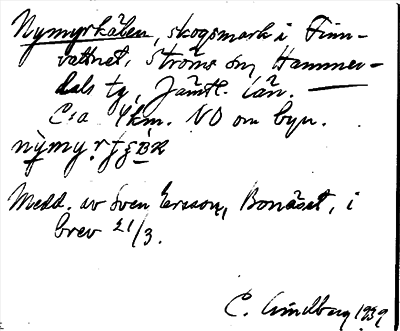 Nymyrkälen, skogsmark i Finn-
vattnet. Ströms sn, Hammer-
dals tg, Jämtl. län.
C:a 4 km. NO om byn.
Medd. av Sven Ersson, Bonäset, i
brev 21/3.
C. Lindberg 1939